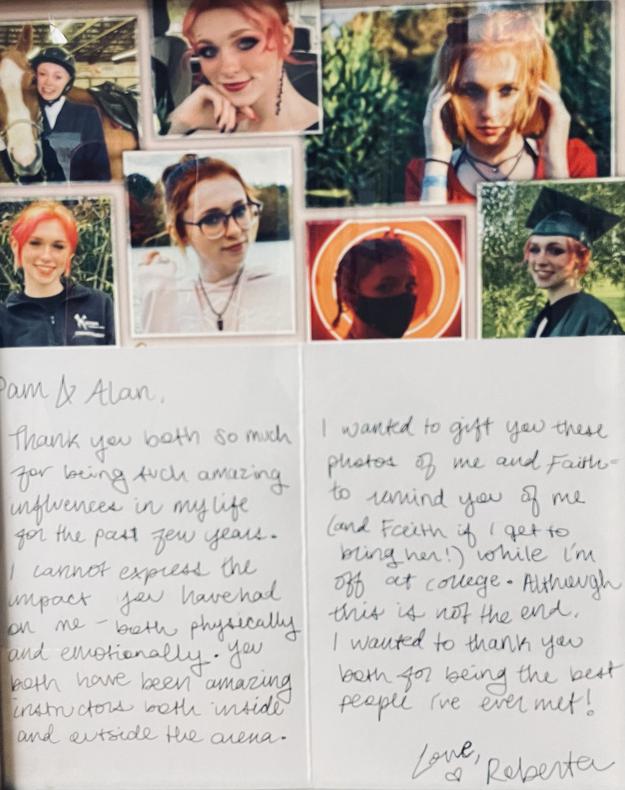 Pam & Alan,
Thank you both so much
for being such amazing
influences in my life
for the past few years.
I cannot express the
impact you have had
on me - both physically
and emotionally. You
both have been amazing
instructors both inside
and outside the arena.
I wanted to gift you these
photos of me and Faith-
to remind you of me
(and Faith if I get to
bring her!) while I'm
off at college. Although
this is not the end,
I wanted to thank you
both for being the best
people I've ever met!
Love,
Roberta